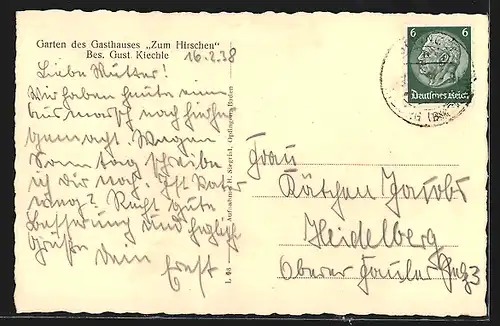 Garten des Gasthauses „Zum Hirschen”
Bes. Gust Kiechle
16.2.38
Liebe Mutter!
Wir haben heute einen
marsch nach
gemacht. Wegen
Sonntag schreibe
ich dir noch. Ist Vater
Recht gute
Besserung und herzliche
Grüße
Dein Ernst
L 98 Aufnahme H. Siegrist, Öpfingen Baden
6 6
Deutsches Reich
Frau
Käthchen Jacobs
Heidelberg
Oberer 3